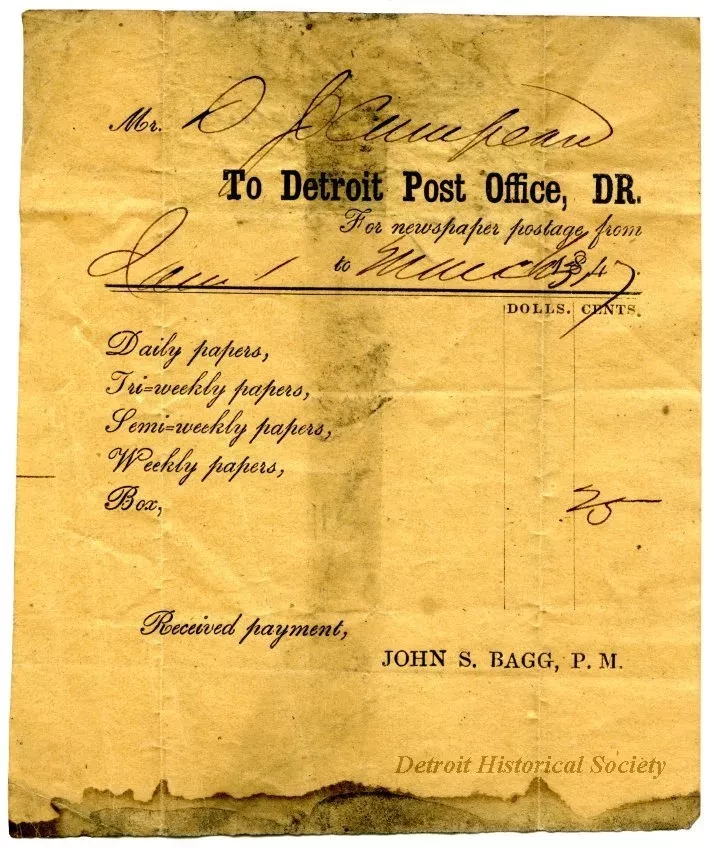 Mr. D J Campeau
To Detroit Post Office, DR.
For newspaper postage from
Jan 1 to March 31, 1847.
DOLLS. CENTS.
Daily papers,
Tri=weekly papers,
Semi=weekly papers,
Weekly papers,
Box, 25
Received payment,
JOHN S. BAGG, P. M.
Detroit Historical Society